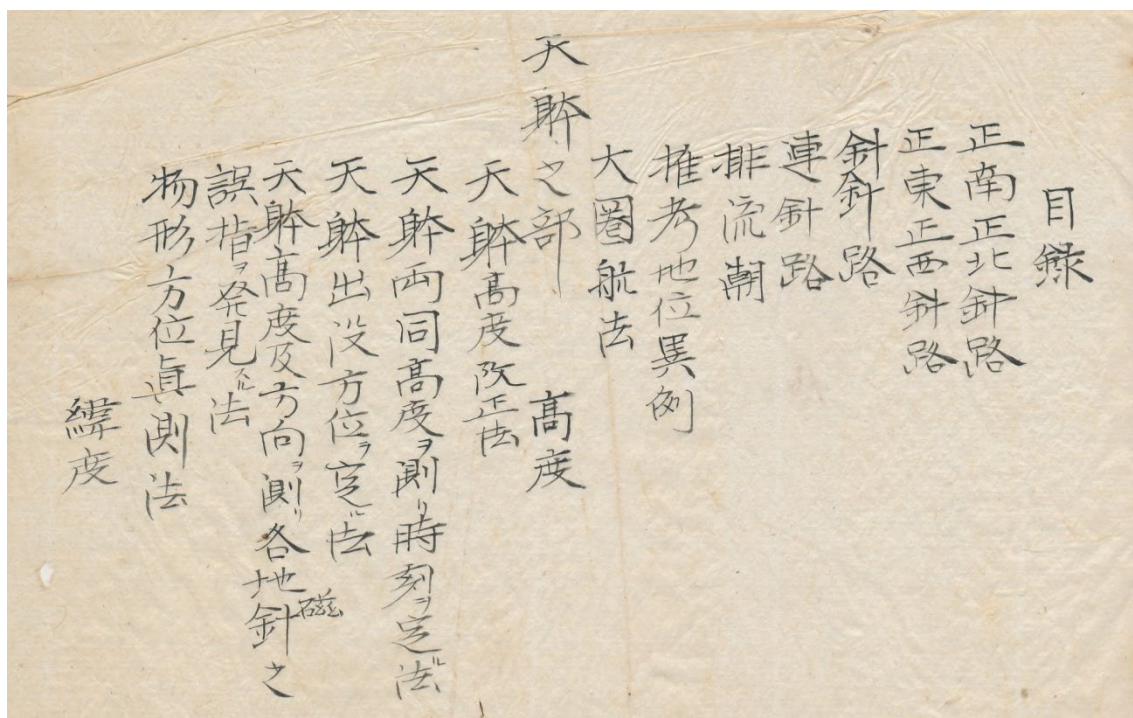 目録
正南正北針路
正東正西斜路
斜針路
連針路
排流潮
推考地位異例
大圏航法
天躰之部 高度
天躰高度改正法
天躰両同高度ヲ測リ時刻ヲ定ル法
天躰出没方位ヲ定ル法
天躰高度及方向ヲ測リ各地磁針之
誤指ヲ発見スル法
物形方位眞測法
緯度